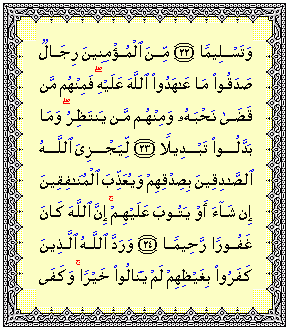 وَتَسْلِيمًا ﴿٢٢﴾ مِّنَ ٱلْمُؤْمِنِينَ رِجَالٌ
صَدَقُوا۟ مَا عَـٰهَدُوا۟ ٱللَّهَ عَلَيْهِ ۖ فَمِنْهُم مَّن
قَضَىٰ نَحْبَهُۥ وَمِنْهُم مَّن يَنتَظِرُ ۖ وَمَا
بَدَّلُوا۟ تَبْدِيلًا ﴿٢٣﴾ لِّيَجْزِىَ ٱللَّهُ
ٱلصَّـٰدِقِينَ بِصِدْقِهِمْ وَيُعَذِّبَ ٱلْمُنَـٰفِقِينَ
إِن شَآءَ أَوْ يَتُوبَ عَلَيْهِمْ ۚ إِنَّ ٱللَّهَ كَانَ
غَفُورًا رَّحِيمًا ﴿٢٤﴾ وَرَدَّ ٱللَّهُ ٱلَّذِينَ
كَفَرُوا۟ بِغَيْظِهِمْ لَمْ يَنَالُوا۟ خَيْرًا ۚ وَكَفَى